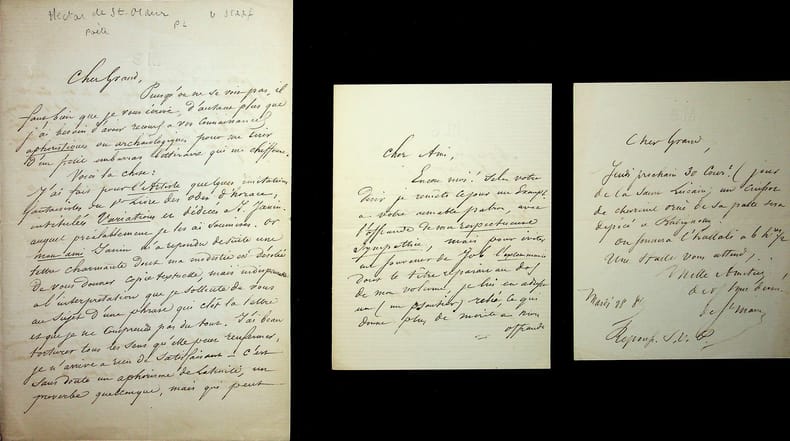 Hector de St Maur
poète
Cher Grand,
Puisqu'on ne se voit pas, il
faut bien que je vous écrive, d'autant plus que
j'ai besoin d'avoir recours à vos connaissances
aphoristiques ou archéologiques pour me tirer
d'un petit embarras littéraire qui me chiffonne.
Voici la chose:
J'ai fait pour l'Artiste quelques imitations
fantaisistes du 1er livre des odes d'horace,
intitulées Variations et dédiées à J. Janin.
auquel préalablement je les ai soumises. Or
mon ami Janin m'a répondu de suite une
lettre charmante dont ma modestie est désolée
de vous donner copie textuelle, mais indispensable
à l'interprétation que je sollicite de vous
au sujet d'une phrase qui clôt la lettre
et que je ne comprends pas du tout. J'ai beau
torturer tous les sens qu'elle peut renfermer,
je n'arrive à rien de satisfaisant; c'est
sans doute un aphorisme de latinité, un
proverbe quelconque, mais qui peut
Cher Ami,
Encore moi! Selon votre
désir je remets ce jour un exempl
à votre aimable patron, avec
l'offrande de ma respectueuse
sympathie, mais pour éviter
un souvenir de Job
dans le titre reparaisse au dos
de mon volume, je lui en adresse
un (un psautier) relié, ce qui
donne plus de mérite à mon
offrande
Cher Grand,
Jeudi prochain 30 Cour! (jour
de la Saint Lucain) un cuissot
de chevreuil orné de sa patte sera
déposé à
on sonnera l'hallali à 6 h.
Une stalle vous attend;
Mille Amitiés,
de St Maur
Mardi 28
Repons. S. V. P.